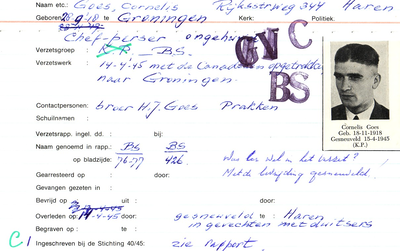 Naam en etc: Goes, Cornelis Rijksstrweg 344 Haren
Geboren: te Groningen Kerk: Politiek:
Chef-perser ongehuwd
Verzetsgroep : K.P. BS.
CNV C
BS
Verzetswerk : 14-4-45 met de Canadezen opgetrokken
naar Groningen.
Contactpersonen: broer H.J. Goes Prakken
Schuilnamen :
Verzetsrapp. ingel. dd. : bij:
Naam genoemd in rapp.: BS BS
op bladzijde: 76-77 426
Was hij wel in het verzet?
Met de bevrijding gesneuveld.
Gearresteerd op : door :
Gevangen gezeten in :
Bevrijd op : uit : door :
Overleden op: 14-4-45 door: gesneuveld te : Haren
in gevechten met duitsers
Begraven op : te :
C1 Ingeschreven bij de Stichting 40/45: zie rapport
Cornelis Goes
Geb. 18-11-1918
Gesneuveld 15-4-1945
(K.P.)